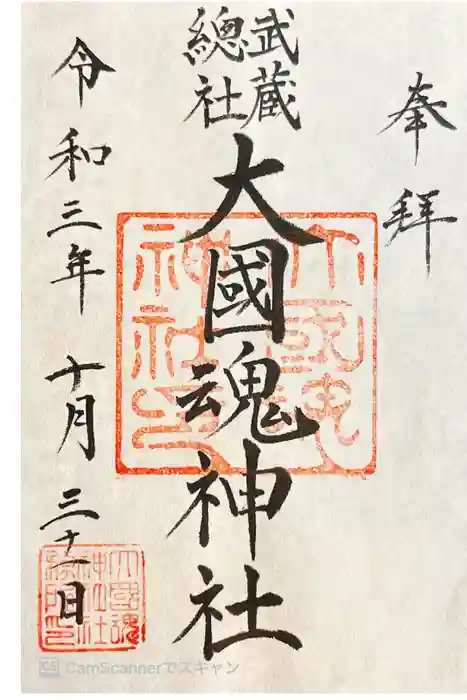 奉拝
武蔵
總社
大國魂神社
令和三年十月三十一日
大國魂
神社
CamScannerでスキャン